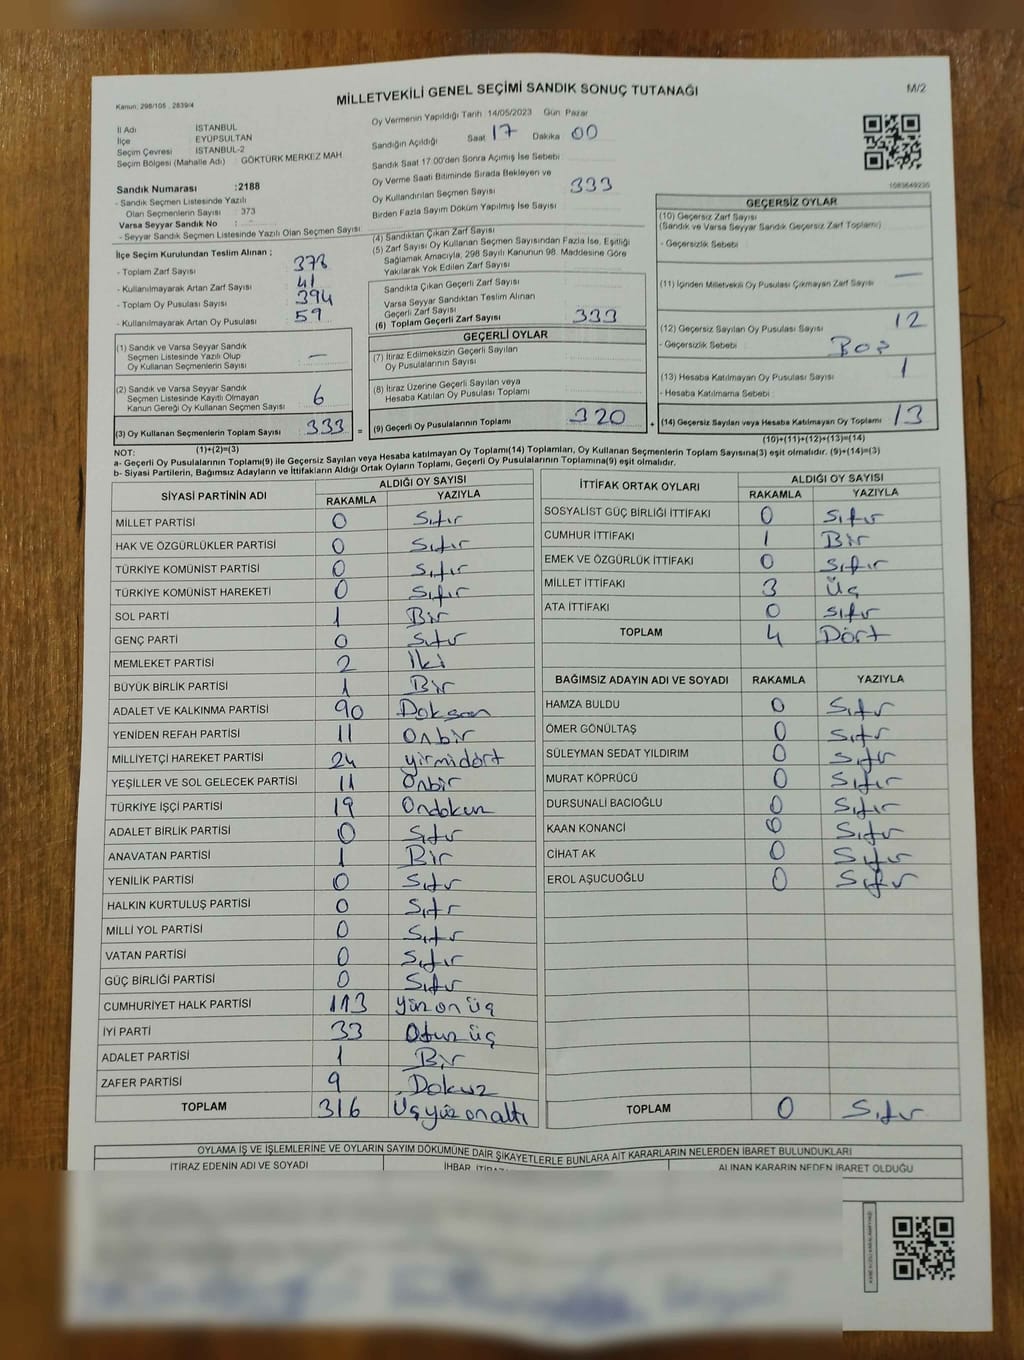 MİLLETVEKİLİ GENEL SEÇİMİ SANDIK SONUÇ TUTANAĞI
M/2
Kanun: 298/105 , 2839/4
İl Adı İSTANBUL
İlçe EYÜPSULTAN
Seçim Çevresi : İSTANBUL-2
Seçim Bölgesi (Mahalle Adı) : GÖKTÜRK MERKEZ MAH
Sandık Numarası :2188
- Sandık Seçmen Listesinde Yazılı
Olan Seçmenlerin Sayısı : 373
Varsa Seyyar Sandık No : -
- Seyyar Sandık Seçmen Listesinde Yazılı Olan Seçmen Sayısı
Oy Vermenin Yapıldığı Tarih :14/05/2023 Gün Pazar
Sandığın Açıldığı Saat 17 Dakika 00
Sandık Saat 17:00'den Sonra Açılmış İse Sebebi
Oy Verme Saati Bitiminde Sırada Bekleyen ve
Oy Kullandırılan Seçmen Sayısı 333
Birden Fazla Sayım Döküm Yapılmış İse Sayısı
1083649235
İlçe Seçim Kurulundan Teslim Alınan ;
- Toplam Zarf Sayısı : 373
- Kullanılmayarak Artan Zarf Sayısı : 41
- Toplam Oy Pusulası Sayısı : 394
- Kullanılmayarak Artan Oy Pusulası : 59
(1) Sandık ve Varsa Seyyar Sandık
Seçmen Listesinde Yazılı Olup
Oy Kullanan Seçmenlerin Sayısı —
(2) Sandık ve Varsa Seyyar Sandık
Seçmen Listesinde Kayıtlı Olmayan
Kanun Gereği Oy Kullanan Seçmen Sayısı 6
(3) Oy Kullanan Seçmenlerin Toplam Sayısı 333
(1)+(2)=(3)
=
(4) Sandıktan Çıkan Zarf Sayısı
(5) Zarf Sayısı Oy Kullanan Seçmen Sayısından Fazla İse, Eşitliği
Sağlamak Amacıyla, 298 Sayılı Kanunun 98. Maddesine Göre
Yakılarak Yok Edilen Zarf Sayısı
Sandıkta Çıkan Geçerli Zarf Sayısı
Varsa Seyyar Sandıktan Teslim Alınan
Geçerli Zarf Sayısı
(6) Toplam Geçerli Zarf Sayısı 333
GEÇERLİ OYLAR
(7) İtiraz Edilmeksizin Geçerli Sayılan
Oy Pusulalarının Sayısı
(8) İtiraz Üzerine Geçerli Sayılan veya
Hesaba Katılan Oy Pusulası Toplamı
(9) Geçerli Oy Pusulalarının Toplamı 320
+
GEÇERSİZ OYLAR
(10) Geçersiz Zarf Sayısı
(Sandık ve Varsa Seyyar Sandık Geçersiz Zarf Toplamı)
- Geçersizlik Sebebi
(11) İçinden Milletvekili Oy Pusulası Çıkmayan Zarf Sayısı —
(12) Geçersiz Sayılan Oy Pusulası Sayısı 12
- Geçersizlik Sebebi Boş
(13) Hesaba Katılmayan Oy Pusulası Sayısı 1
- Hesaba Katılmama Sebebi
(14) Geçersiz Sayılan veya Hesaba Katılmayan Oy Toplamı 13
(10)+(11)+(12)+(13)=(14)
NOT:
a- Geçerli Oy Pusulalarının Toplamı(9) ile Geçersiz Sayılan veya Hesaba Katılmayan Oy Toplamı(14) Toplamları, Oy Kullanan Seçmenlerin Toplam Sayısına(3) eşit olmalıdır. (9)+(14)=(3)
b- Siyasi Partilerin, Bağımsız Adayların ve İttifakların Aldığı Ortak Oyların Toplamı, Geçerli Oy Pusulalarının Toplamına(9) eşit olmalıdır.
SİYASİ PARTİNİN ADI ALDIĞI OY SAYISI
RAKAMLA YAZIYLA
MİLLET PARTİSİ 0 Sıfır
HAK VE ÖZGÜRLÜKLER PARTİSİ 0 Sıfır
TÜRKİYE KOMÜNİST PARTİSİ 0 Sıfır
TÜRKİYE KOMÜNİST HAREKETİ 0 Sıfır
SOL PARTİ 1 Bir
GENÇ PARTİ 0 Sıfır
MEMLEKET PARTİSİ 2 İki
BÜYÜK BİRLİK PARTİSİ 1 Bir
ADALET VE KALKINMA PARTİSİ 90 Doksan
YENİDEN REFAH PARTİSİ 11 Onbir
MİLLİYETÇİ HAREKET PARTİSİ 24 yirmidört
YEŞİLLER VE SOL GELECEK PARTİSİ 11 Onbir
TÜRKİYE İŞÇİ PARTİSİ 19 Ondokuz
ADALET BİRLİK PARTİSİ 0 Sıfır
ANAVATAN PARTİSİ 1 Bir
YENİLİK PARTİSİ 0 Sıfır
HALKIN KURTULUŞ PARTİSİ 0 Sıfır
MİLLİ YOL PARTİSİ 0 Sıfır
VATAN PARTİSİ 0 Sıfır
GÜÇ BİRLİĞİ PARTİSİ 0 Sıfır
CUMHURİYET HALK PARTİSİ 113 Yüz on üç
İYİ PARTİ 33 Otuz üç
ADALET PARTİSİ 1 Bir
ZAFER PARTİSİ 9 Dokuz
TOPLAM 316 Üç yüz on altı
İTTİFAK ORTAK OYLARI ALDIĞI OY SAYISI
RAKAMLA YAZIYLA
SOSYALİST GÜÇ BİRLİĞİ İTTİFAKI 0 Sıfır
CUMHUR İTTİFAKI 1 Bir
EMEK VE ÖZGÜRLÜK İTTİFAKI 0 Sıfır
MİLLET İTTİFAKI 3 Üç
ATA İTTİFAKI 0 Sıfır
TOPLAM 4 Dört
BAĞIMSIZ ADAYIN ADI VE SOYADI RAKAMLA YAZIYLA
HAMZA BULDU 0 Sıfır
ÖMER GÖNÜLTAŞ 0 Sıfır
SÜLEYMAN SEDAT YILDIRIM 0 Sıfır
MURAT KÖPRÜCÜ 0 Sıfır
DURSUNALİ BACIOĞLU 0 Sıfır
KAAN KONANCİ 0 Sıfır
CİHAT AK 0 Sıfır
EROL AŞUCUOĞLU 0 Sıfır
TOPLAM 0 Sıfır
OYLAMA İŞ VE İŞLEMLERİNE VE OYLARIN SAYIM DÖKÜMÜNE DAİR ŞİKAYETLERLE BUNLARA AİT KARARLARIN NELERDEN İBARET BULUNDUKLARI
İTİRAZ EDENİN ADI VE SOYADI
İHBAR, İTİRAZ
ALINAN KARARIN NEDEN İBARET OLDUĞU